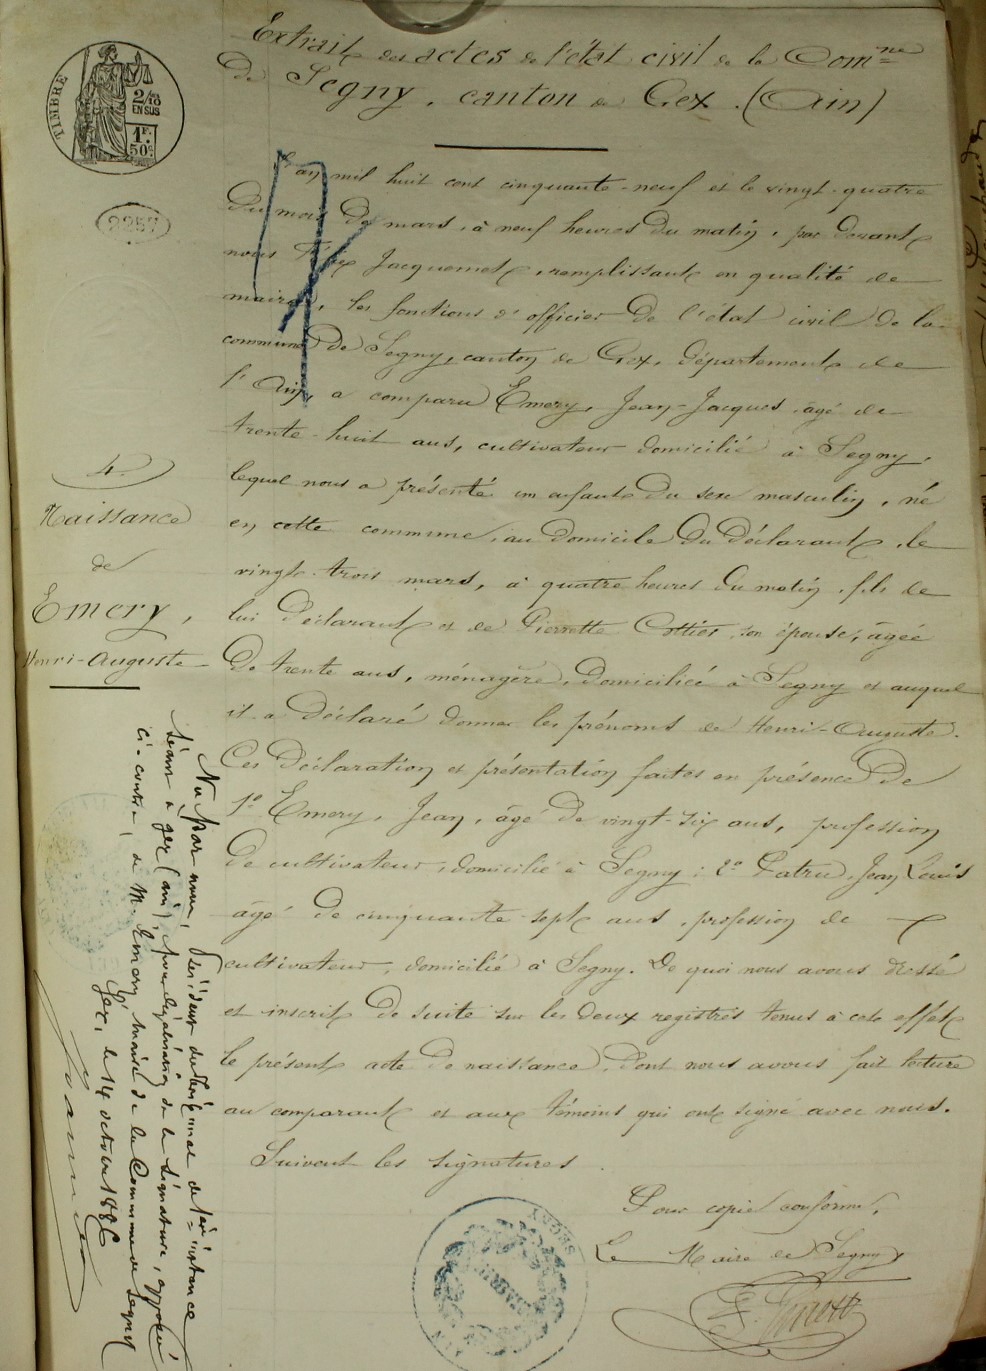 Extrait des actes de l'état civil de la Comne
De Segny, canton de Gex. (Ain)
TIMBRE
2/10
EN SUS
1F.
50c.
2257
L'an mil huit cent cinquante-neuf et le vingt-quatre
du mois de mars, à neuf heures du matin, par devant
nous Jacquemet, remplissant en qualité de
maire, les fonctions d'officier de l'état civil de la
commune de Segny, canton de Gex, département de
l'Ain, a comparu Emery, Jean-Jacques âgé de
trente-huit ans, cultivateur domicilié à Segny,
lequel nous a présenté un enfant du sexe masculin, né
en cette commune, au domicile du déclarant, le
vingt-trois mars, à quatre heures du matin, fils de
lui déclarant et de Pierrette Cottier son épouse, âgée
de trente ans, ménagère, domiciliée à Segny et auquel
il a déclaré donner les prénoms de Henri-Auguste.
Ces déclaration et présentation faites en présence de
1° Emery, Jean, âgé de vingt-six ans, profession
de cultivateur, domicilié à Segny; 2° Patru, Jean Louis
âgé de cinquante-sept ans, profession de
cultivateur, domicilié à Segny. De quoi nous avons dressé
et inscrit de suite sur les deux registres tenus à cet effet
le présent acte de naissance, dont nous avons fait lecture
au comparant et aux témoins qui ont signé avec nous.
Suivent les signatures
Pour copie conforme,
Le Maire de Segny
SEGNY
4
Naissance
de
Emery,
Henri-Auguste
Vu par nous, Président du tribunal de 1ère instance
séant à Gex (ain), pour légalisation de la signature, apposée
ci-contre, de M. Emery, maire de la Commune de Segny
Gex, le 14 octobre